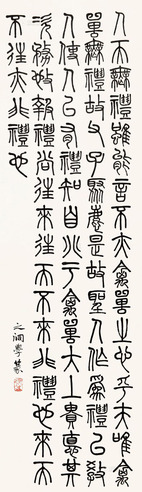 人而無禮雖能言不亦禽獸之心乎夫唯禽
獸無禮故父子聚麀是故聖人作為禮以教
人使人以有禮知自別於禽獸大上貴德其
次務施報禮尚往來往而不來非禮也來而
不往亦非禮也
之學篆